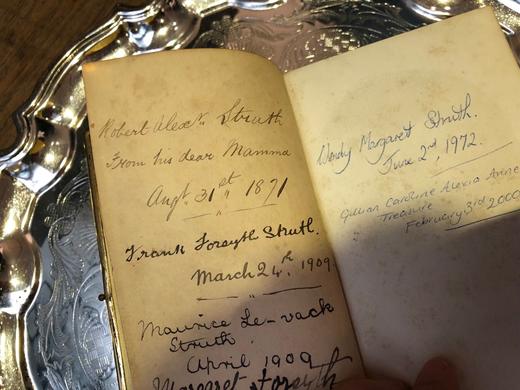 Robert Alexr. Struth
From his dear Mamma
Augt. 31st 1871
Frank Forsyth Struth.
March 24th, 1909
Maurice Le-vack
Struth
April 1909
Margaret Forsyth
Wendy Margaret Struth.
June 2nd, 1972.
Gillian Caroline Alexia Anne
Treasure
February 3rd 2000